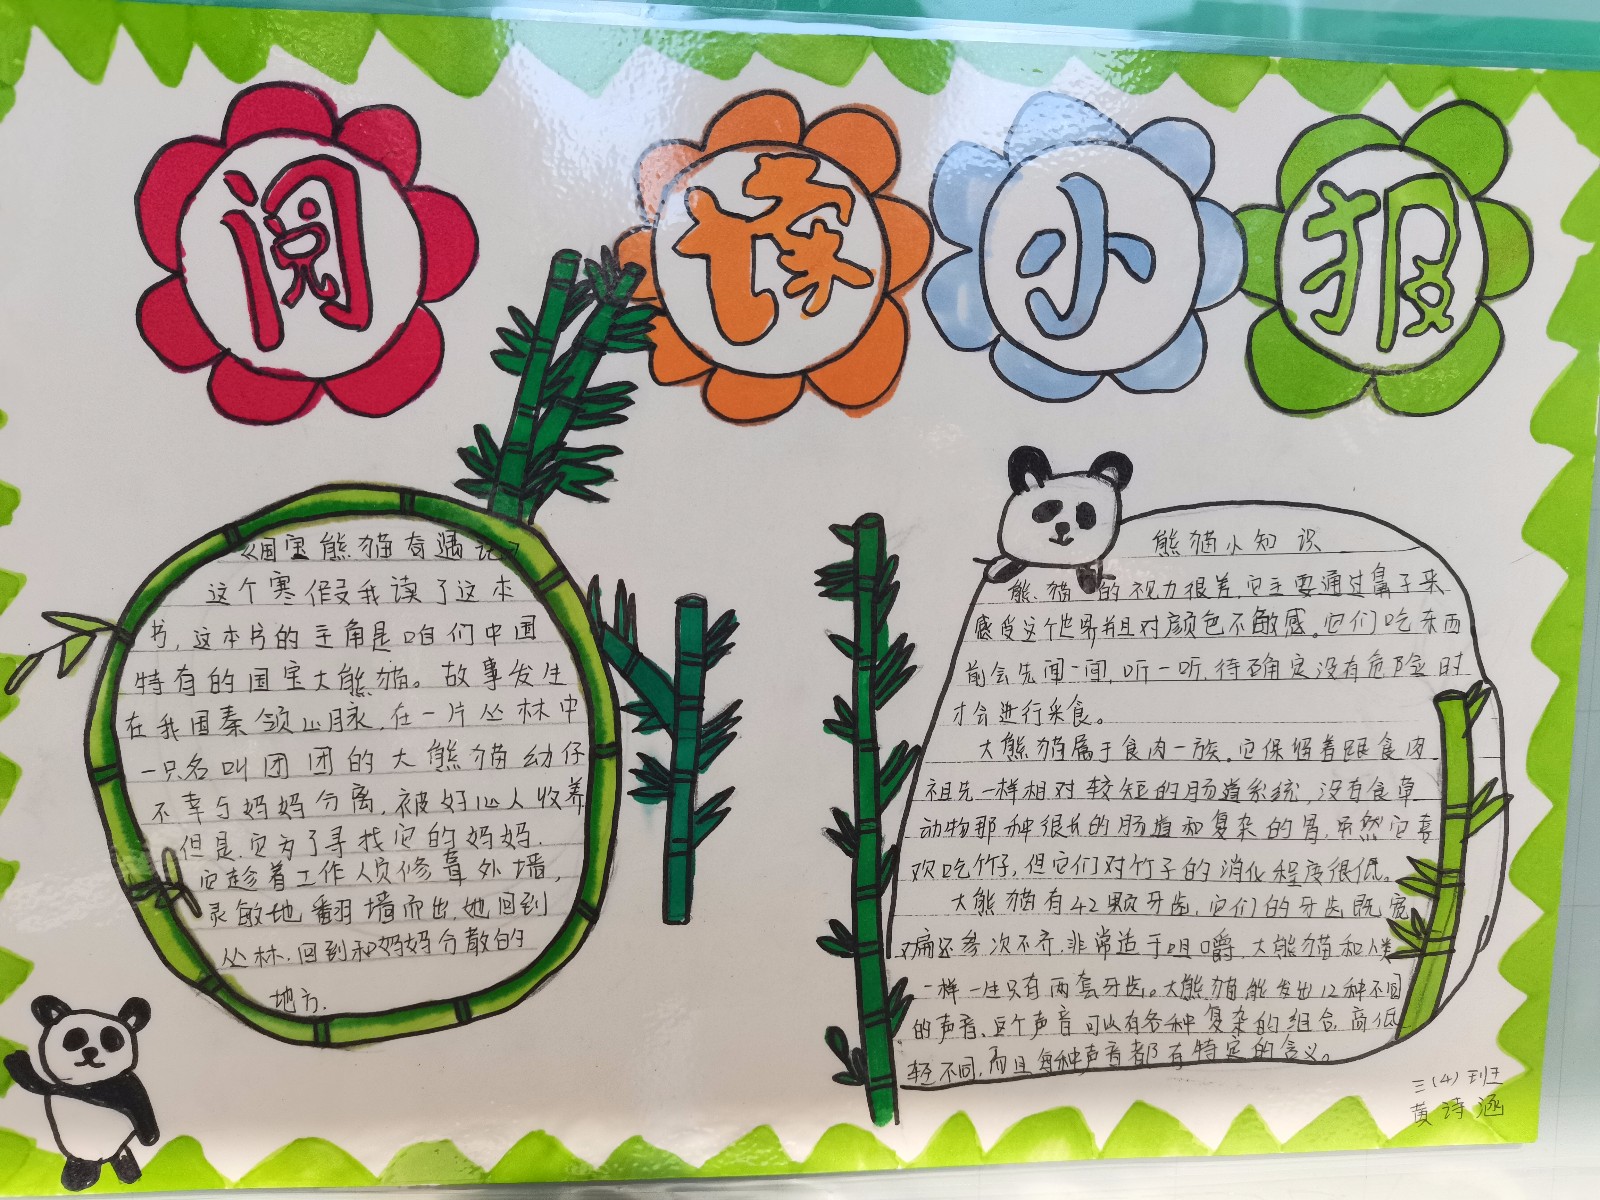 阅读小报
《国宝熊猫奇遇记》
这个寒假我读了这本
书,这本书的主角是咱们中国
特有的国宝大熊猫。故事发生
在我国秦领山脉,在一片丛林中
一只名叫团团的大熊猫幼仔
不幸与妈妈分离,被好心人收养
但是,它为了寻找它的妈妈.
它趁着工作人员修葺外墙,
灵敏地翻墙而出,她回到
丛林,回到和妈妈分散的
地方.
熊猫小知识
熊猫的视力很差,它主要通过鼻子来
感受这个世界并且对颜色不敏感。它们吃东西
前会先闻一闻,听一听,待确定没有危险时
才会进行采食。
大熊猫属于食肉一族。它保留着跟食肉
祖先一样相对较短的肠道系统,没有食草
动物那种很长的肠道和复杂的胃,虽然它喜
欢吃竹子,但它们对竹子的消化程度很低。
大熊猫有42颗牙齿,它们的牙齿既宽
还参次不齐,非常适于咀嚼,大熊猫和人类
一样一生只有两套牙齿。大熊猫能发出12种不同
的声音、且个声音可以有各种复杂的组合,高低
轻不同,而且每种声音都有特定的含义。
三(4)班
黄诗涵